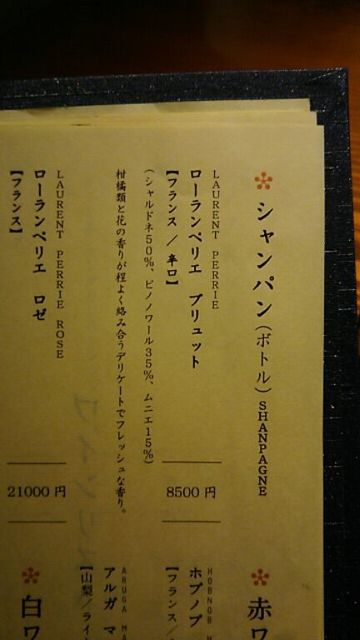 シャンパン(ボトル) SHANPAGNE
LAURENT PERRIE
ローランペリエ ブリュット
【フランス / 辛口】
8500 円
(シャルドネ50%、ピノノワール35%、ムニエ15%)
柑橘類と花の香りが程よく絡み合うデリケートでフレッシュな香り。
LAURENT PERRIE ROSE
ローランペリエ ロゼ
【フランス】
21000 円
赤ワ
HOBNOB
ホブノブ
【フランス/
ARUGA
アルガ マ
【山梨/ライ
白ワ